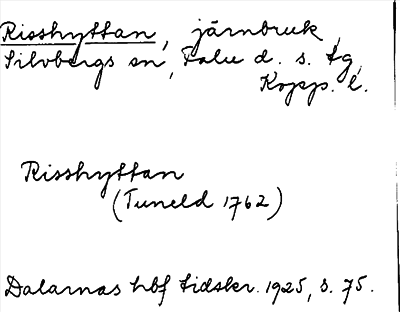 Risshyttan, järnbruk,
Silvbergs sn, Falu d. s. tg,
Kopp. l.
Risshyttan
(Tuneld 1762)
Dalarnas hbf tidskr. 1925, s. 75.